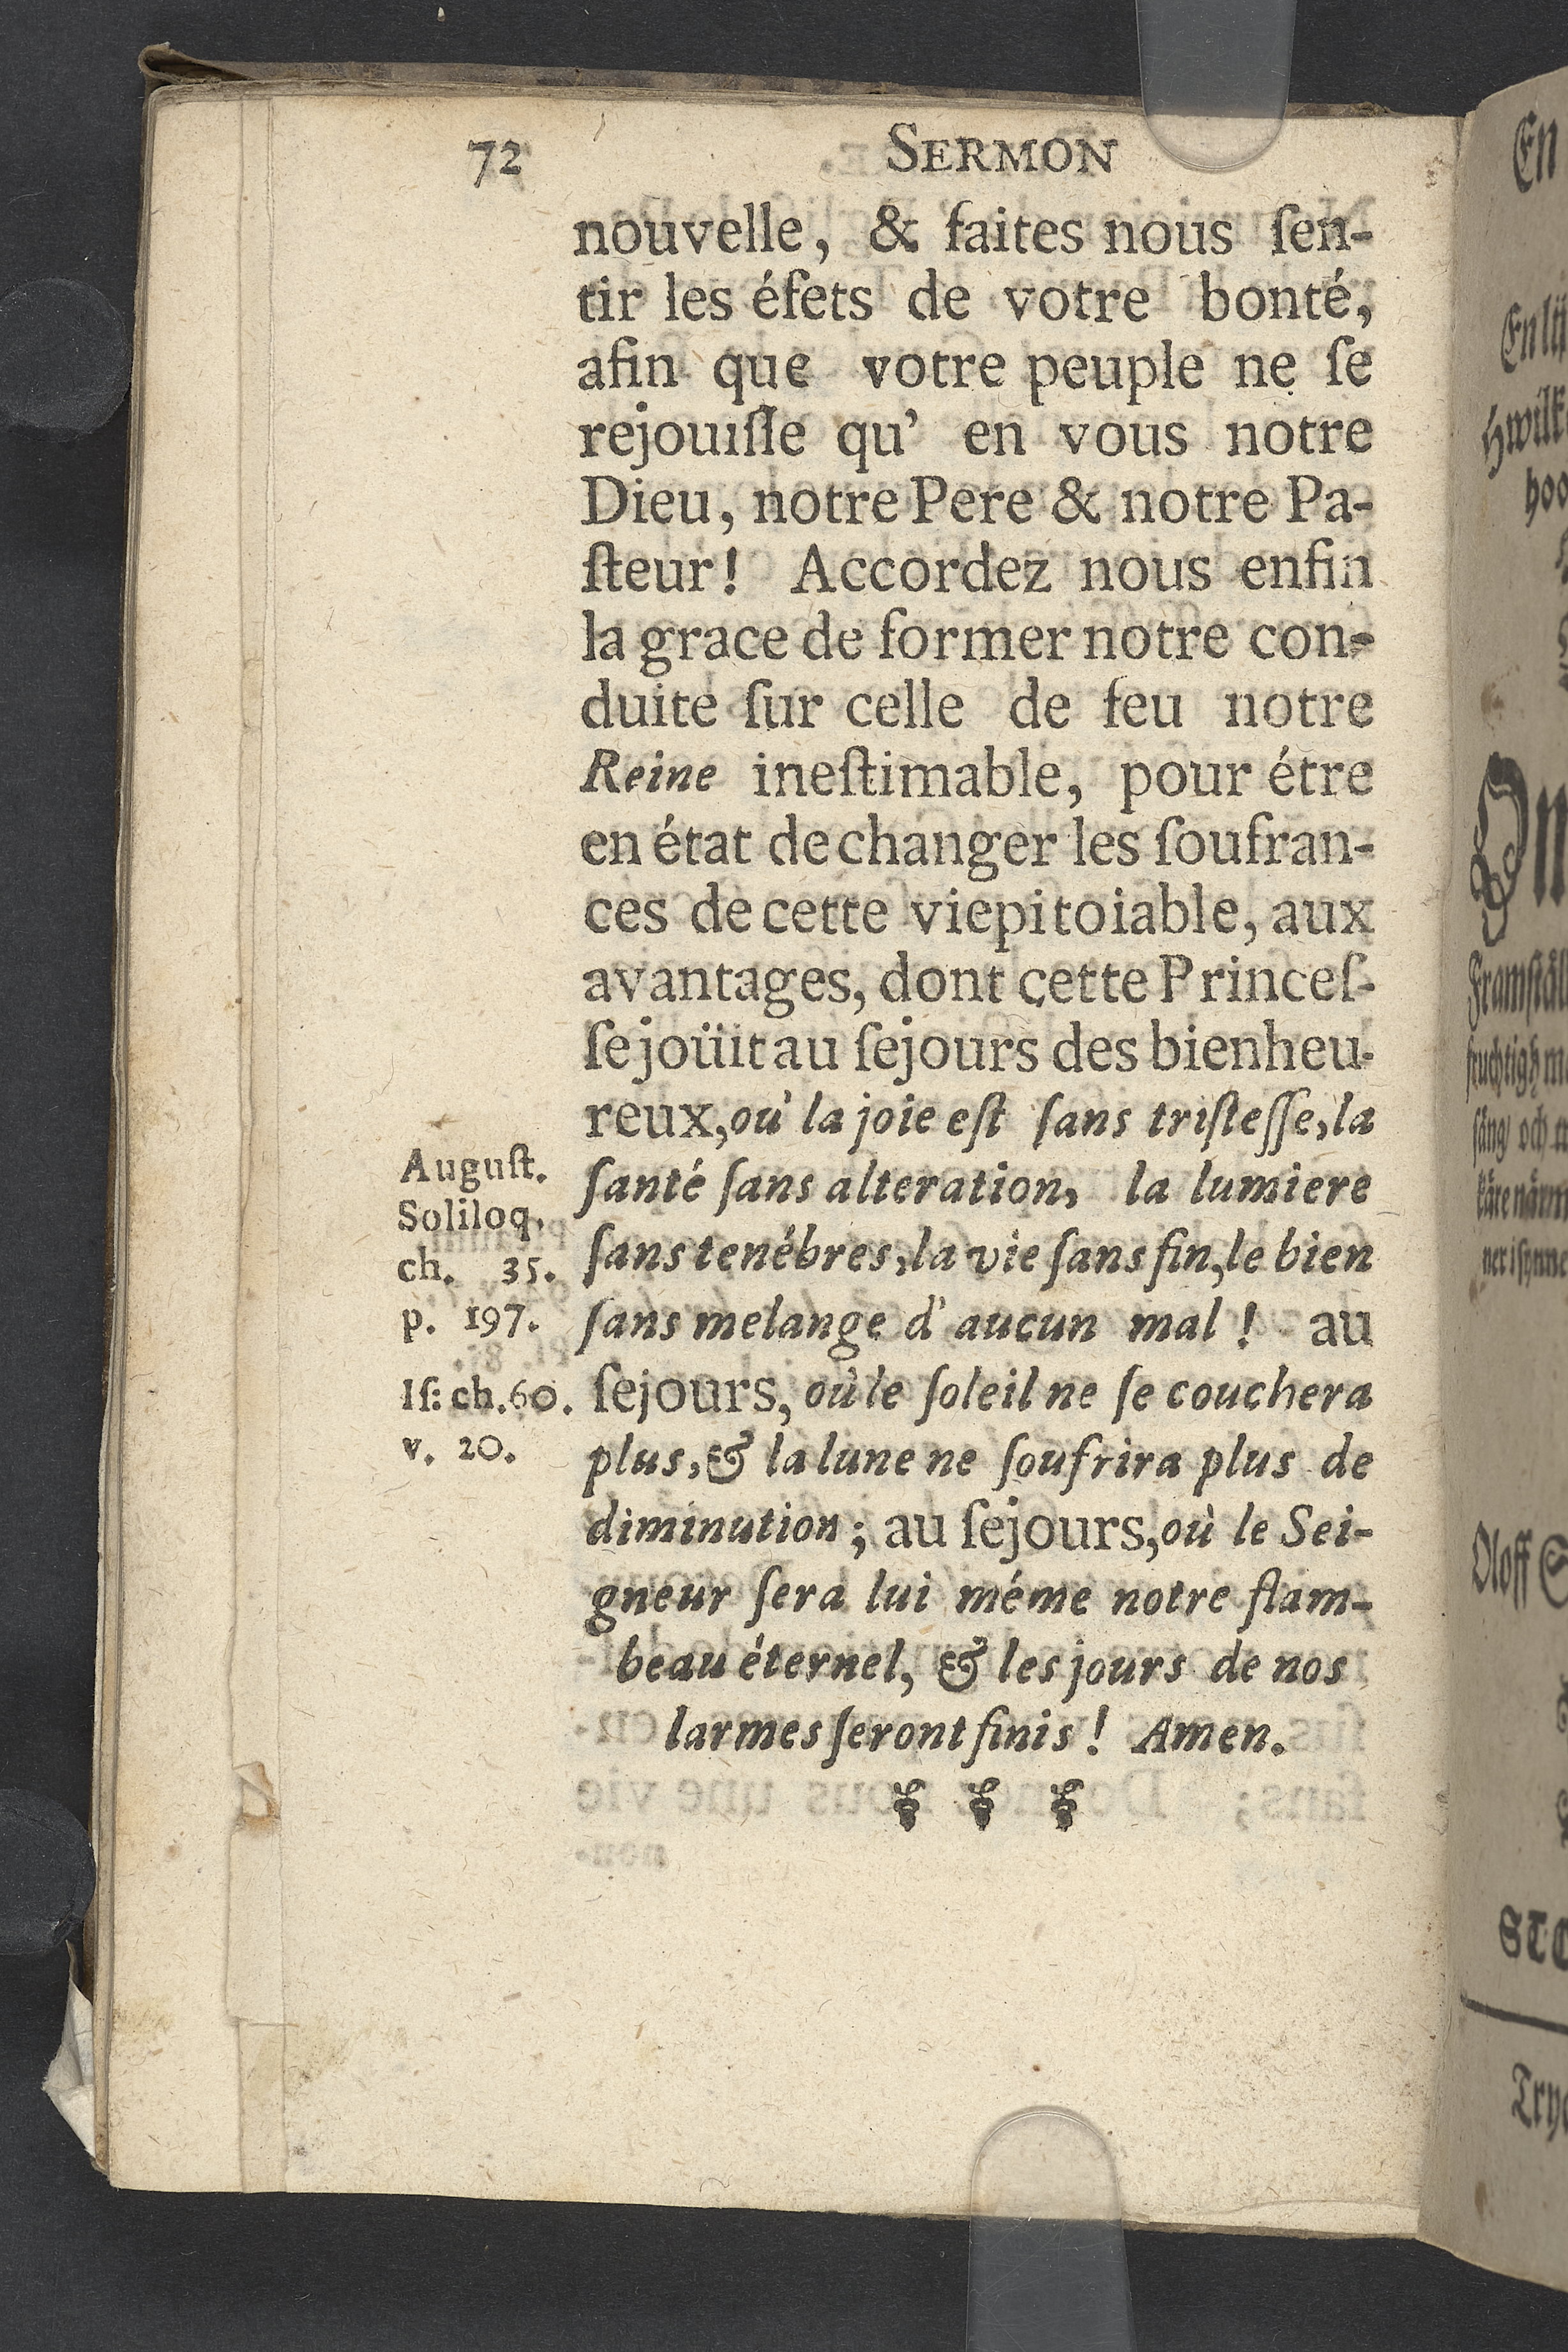 72 SERMON
nouvelle, & faites nous ſen-
tir les éfets de votre bonté,
afin que votre peuple ne ſe
rejouiſſe qu' en vous notre
Dieu, notre Pere & notre Pa-
ſteur! Accordez nous enfin
la grace de former notre con-
duite ſur celle de feu notre
Reine ineſtimable, pour étre
en état de changer les ſoufran-
ces de cette vie pitoiable, aux
avantages, dont cette Princeſ-
ſe joüit au ſejours des bienheu-
reux, où la joie eſt ſans triſteſſe, la
ſanté ſans alteration, la lumiere
ſans tenébres, la vie ſans fin, le bien
ſans melange d' aucun mal! au
ſejours, où le ſoleil ne ſe couchera
plus, & la lune ne ſoufrira plus de
diminution; au ſejours, où le Sei-
gneur ſera lui méme notre flam-
beau éternel, & les jours de nos
larmes ſeront finis! Amen.
Auguſt.
Soliloq.
ch. 35.
p. 197.
Iſ: ch. 60.
v. 20.
En